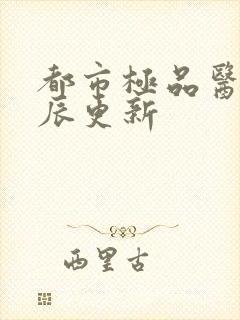 都市極品醫
辰更新
西里古